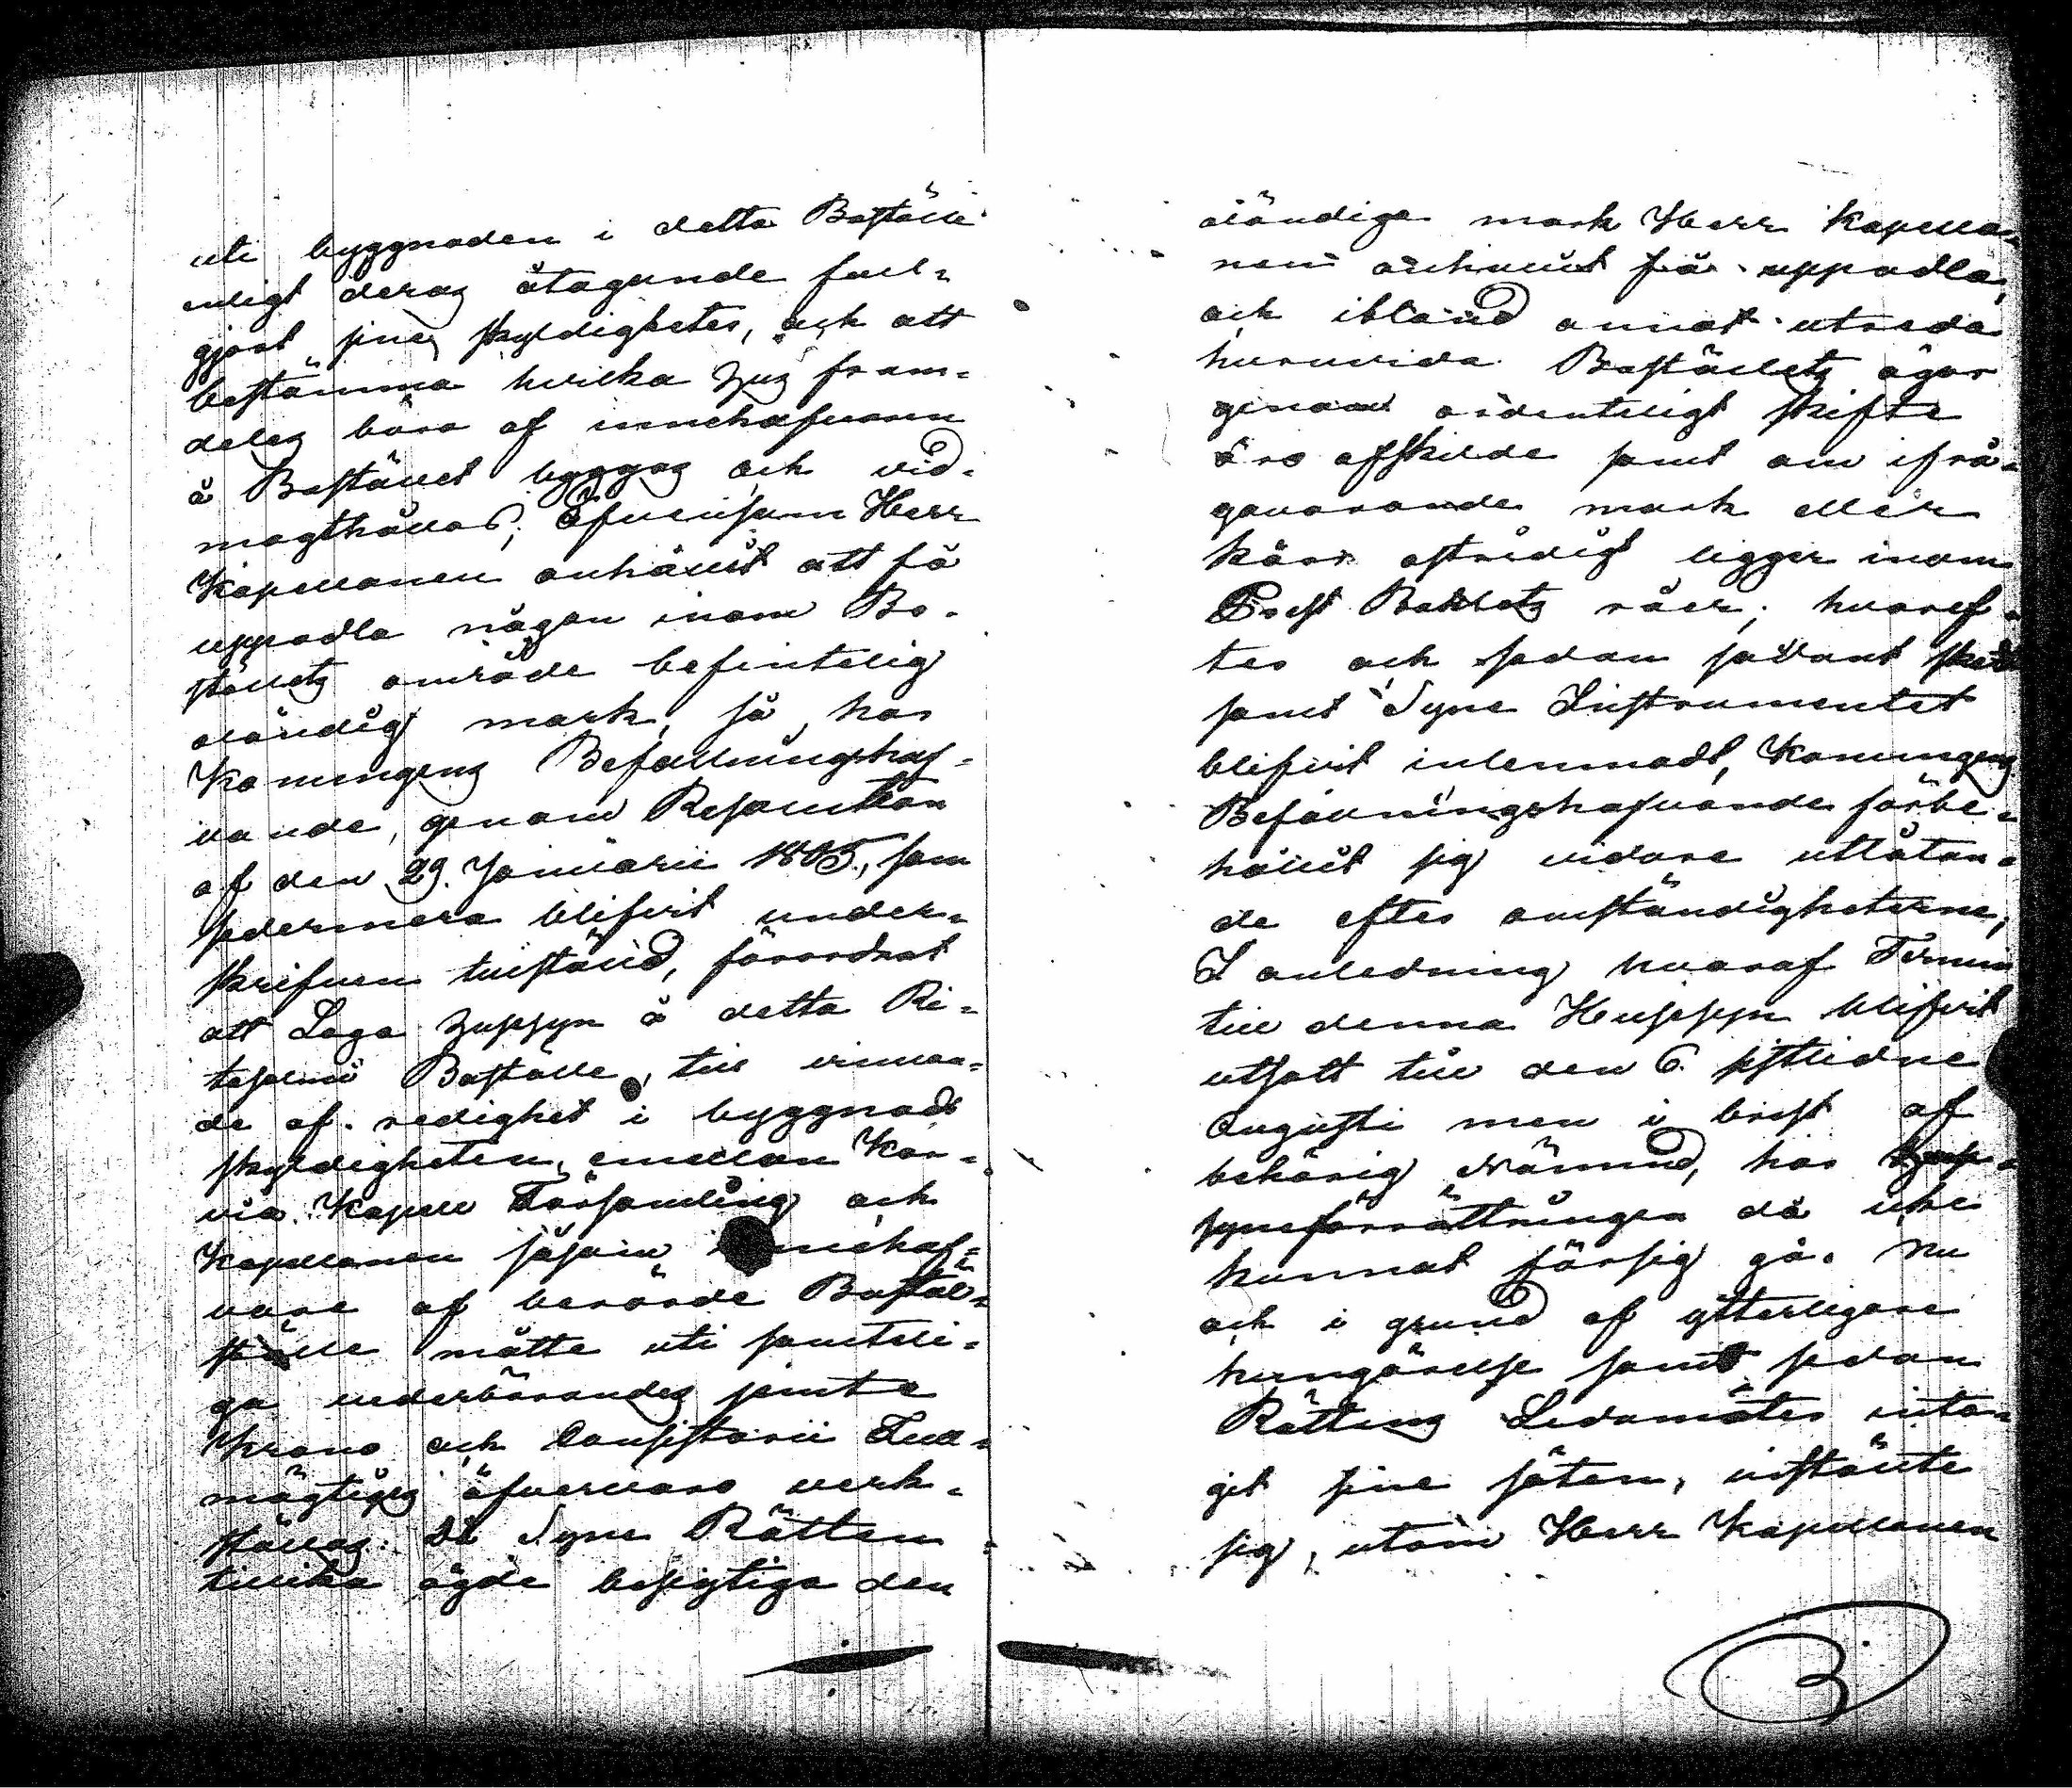 uti byggnaden i detta Boställe
enligt deras åtagande full-
gjort sine skyldigheter, och att
bestämma hvilka hus fram-
deles böra af innehafvaren
å Bostället byggas och vid-
magthållas; Äfvensom Herr
Kapellanen anhållit att få
uppodla någon inom Bo-
ställets område befintelig
oländig mark, så har
Konungens Befallningshaf-
vande, genom Resolution
af den 29. Januarii 1805, som
sedermera blifvit under-
skrifven tillstånd, förordnat
att Laga Hussyn å detta Ri-
 Boställe, till vinnan-
de af redighet i byggnads
skyldigheten, emellan Kar-
via Kapell Församling och
Kapellanen såsom innehaf-
vare af berörde Bostäl-
ställe måtte uti samteli-
ga vederbörandes jemte
Krono och Consistorii Full-
mägtiges öfvervaro verk-
ställas. Då Syne Rätten
tillika ägde besigtiga den
oländiga mark Herr Kapella-
nen anhållit få uppodla,
och ibland annat utreda
huruvida Boställets ägor
genom ordenteligt skifte
äro afskilde samt om ifrå-
gavarande mark eller
kärr ostridigt ligger inom
Prest Bolets råer; hvaref-
ter och sedan sådant skedt
samt Syne Instrumentet
blifvit inlemnadt, Konungens
Befallningshafvande förbe-
hållit sig vidare utlåtan-
de efter omständigheterne;
I anledning hvaraf Termin
till denna Hussyn blifvit
utsatt till den 6. sistlidne
Augusti men i brist af
behörig Nämnd, har
syneförrättningen då icke
kunnat försig gå. Nu
och i grund af ytterligare
kungörelse samt sedan
Rättens Ledamöter inta-
git sine säten, inställte
sig, utom Herr Kapellanen